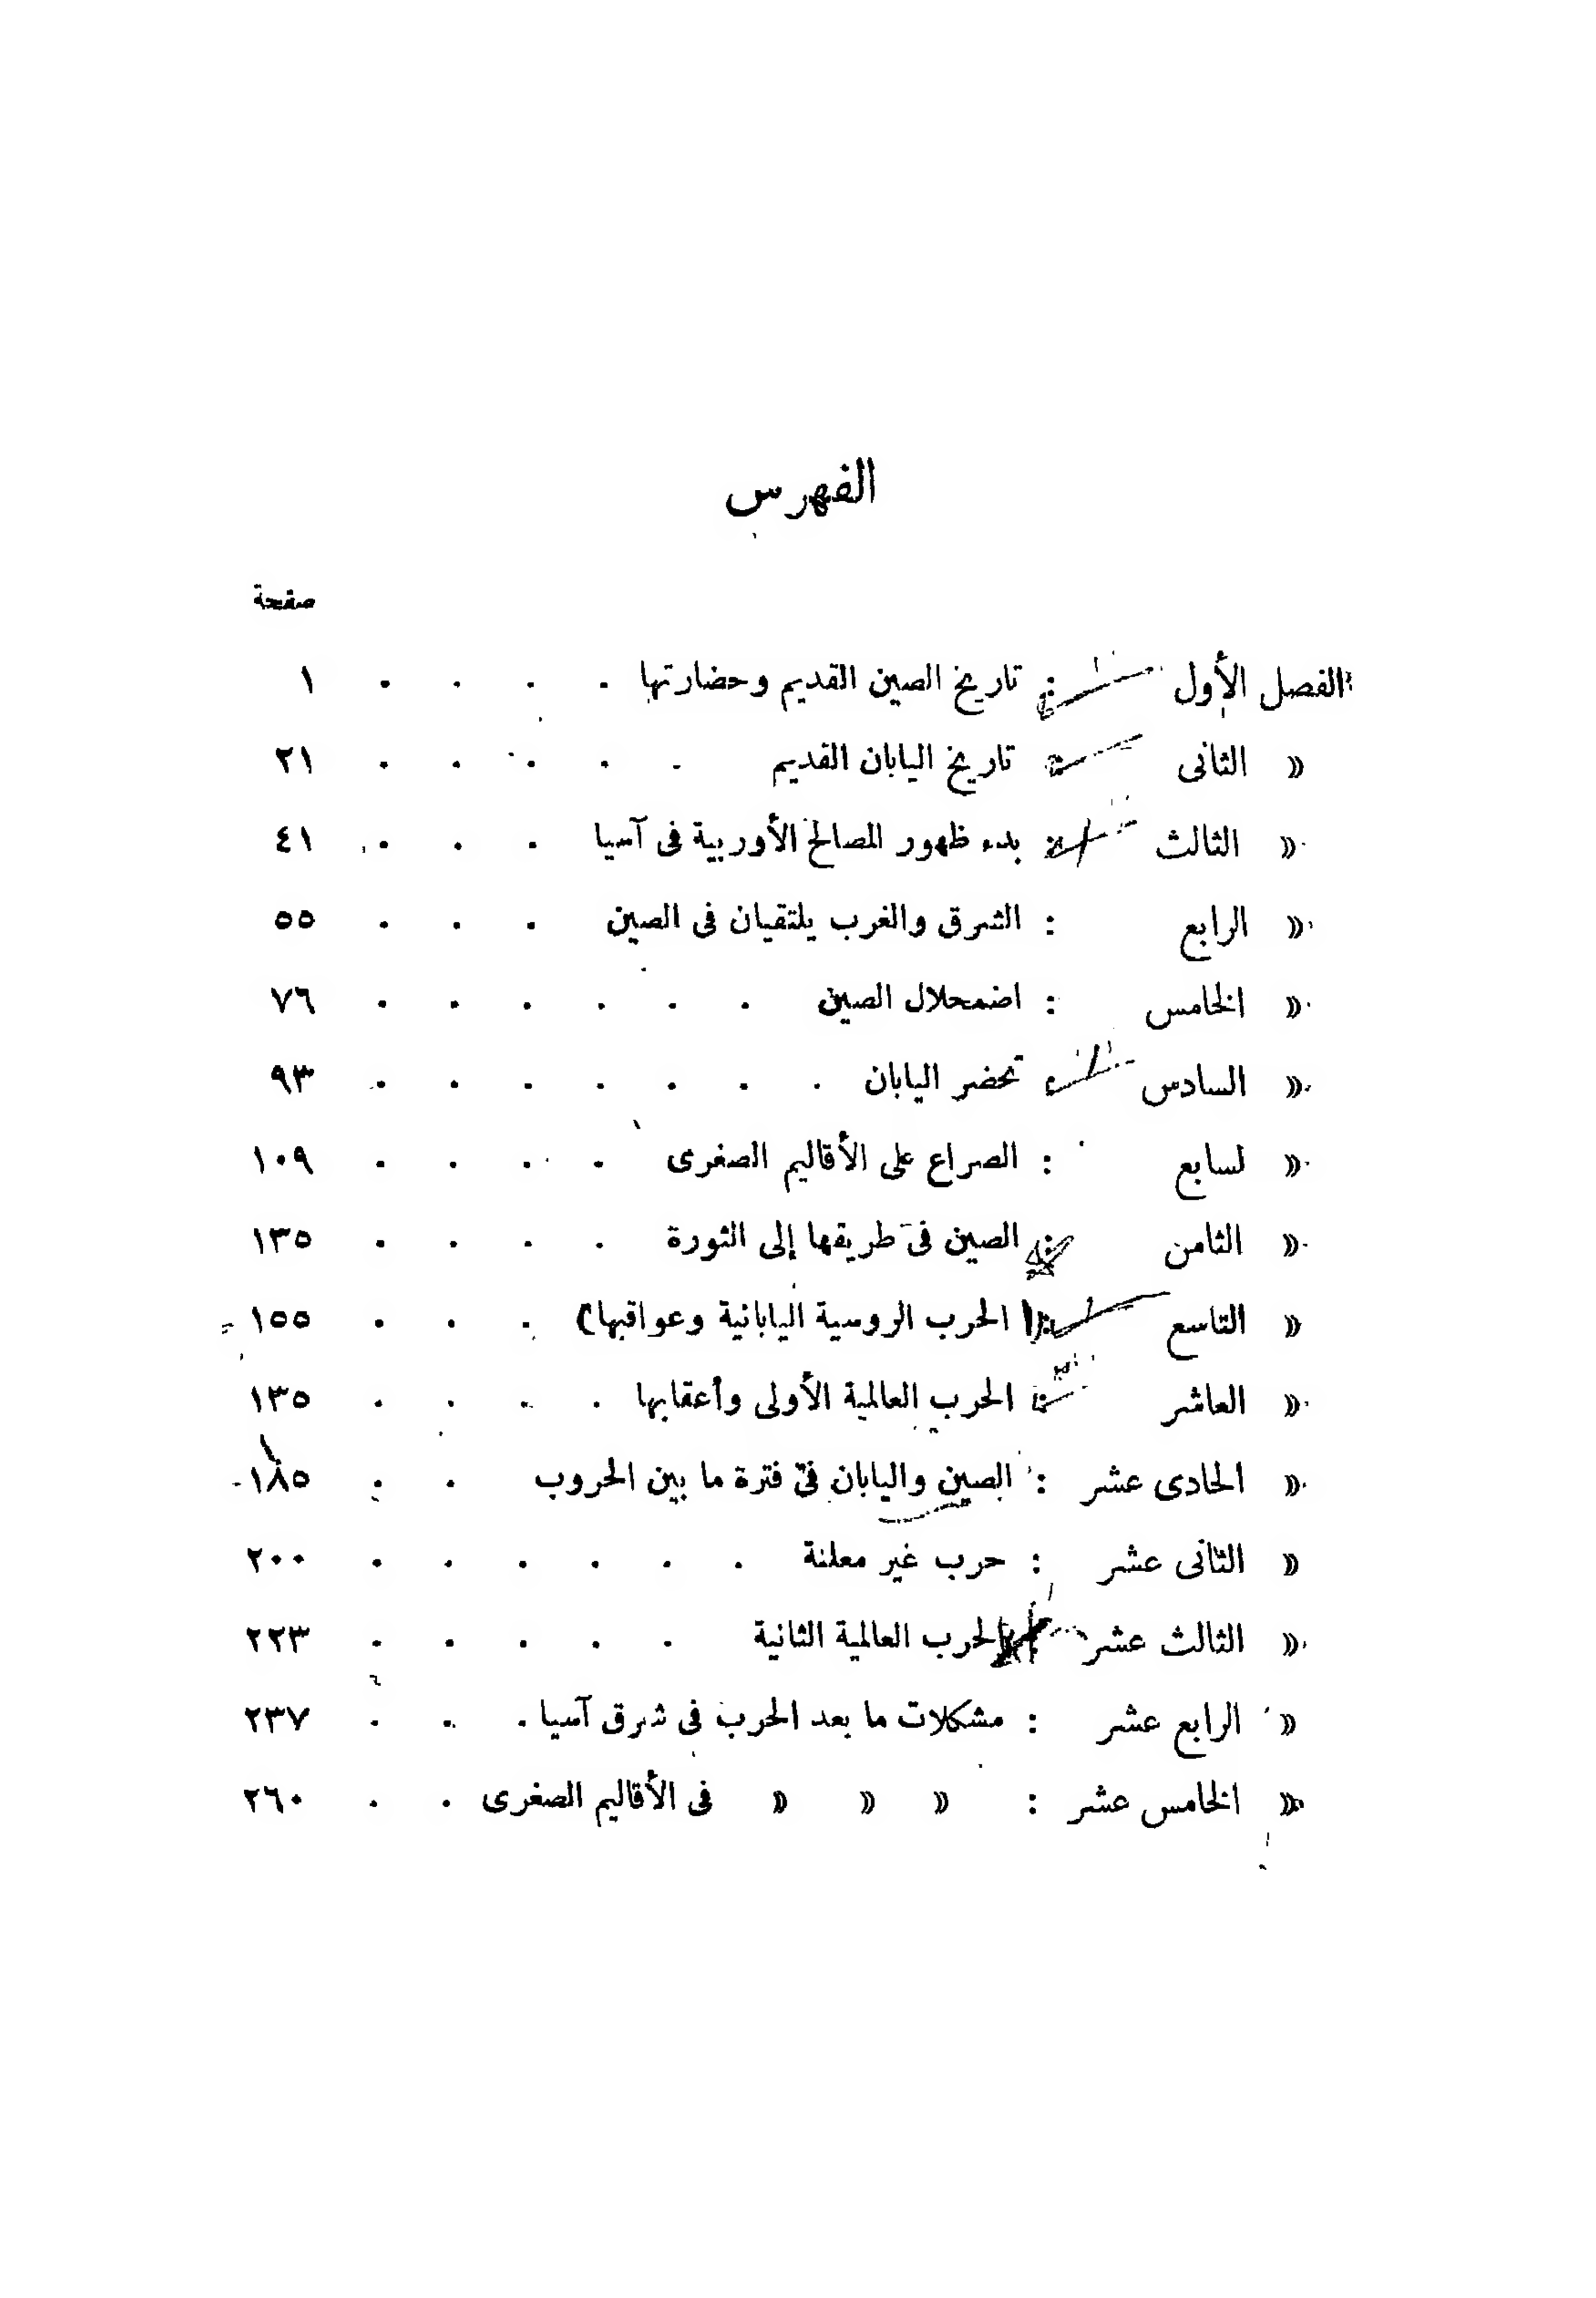 الفهرس
صفحة
الفصل الأول : تاريخ الصين القديم وحضارتها . . . . ١
« الثانى : تاريخ اليابان القديم . . . . . ٢١
« الثالث : بدء ظهور المصالح الأوربية فى آسيا . . . ٤١
« الرابع : الشرق والغرب يلتقيان فى الصين . . . ٥٥
« الخامس : اضمحلال الصين . . . . . . ٧٦
« السادس : تحضر اليابان . . . . . . . ٩٣
« لسابع : الصراع على الأقاليم الصغرى . . . . ١٠٩
« الثامن : الصين فى طريقها إلى الثورة . . . . ١٣٥
« التاسع : ( الحرب الروسية اليابانية وعواقبها ) . . . ١٥٥
« العاشر : الحرب العالمية الأولى وأعقابها . . . . ١٣٥
« الحادى عشر : الصين واليابان فى فترة ما بين الحروب . . ١٨٥
« الثانى عشر : حرب غير معلنة . . . . . . ٢٠٠
« الثالث عشر : الحرب العالمية الثانية . . . . . ٢٢٣
« الرابع عشر : مشكلات ما بعد الحرب فى شرق آسيا . . . ٢٣٧
« الخامس عشر : « « « فى الأقاليم الصغرى . . ٢٦٠